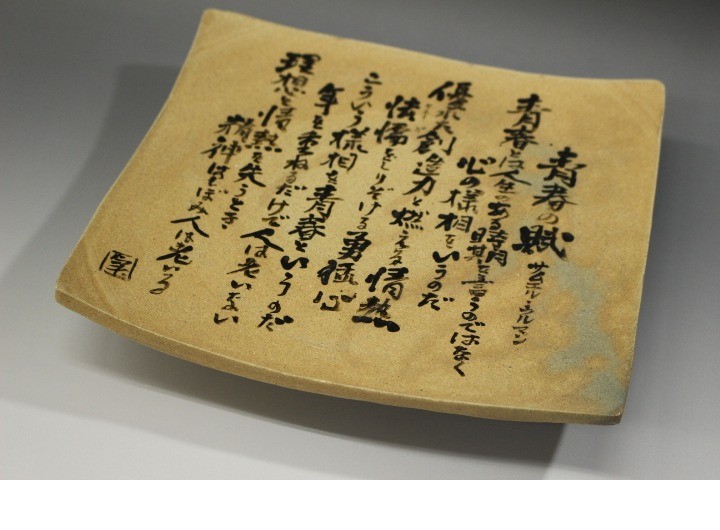 青春の賦 サムエル・ウルマン
青春とは人生のある時期を言うのではなく
心の様相をいうのだ
優れた創造力と燃える情熱
怯懦をしりぞける勇猛心
こういう様相を青春というのだ
年を重ねるだけで人は老いない
理想と情熱を失うとき
精神はしぼみ人は老いる